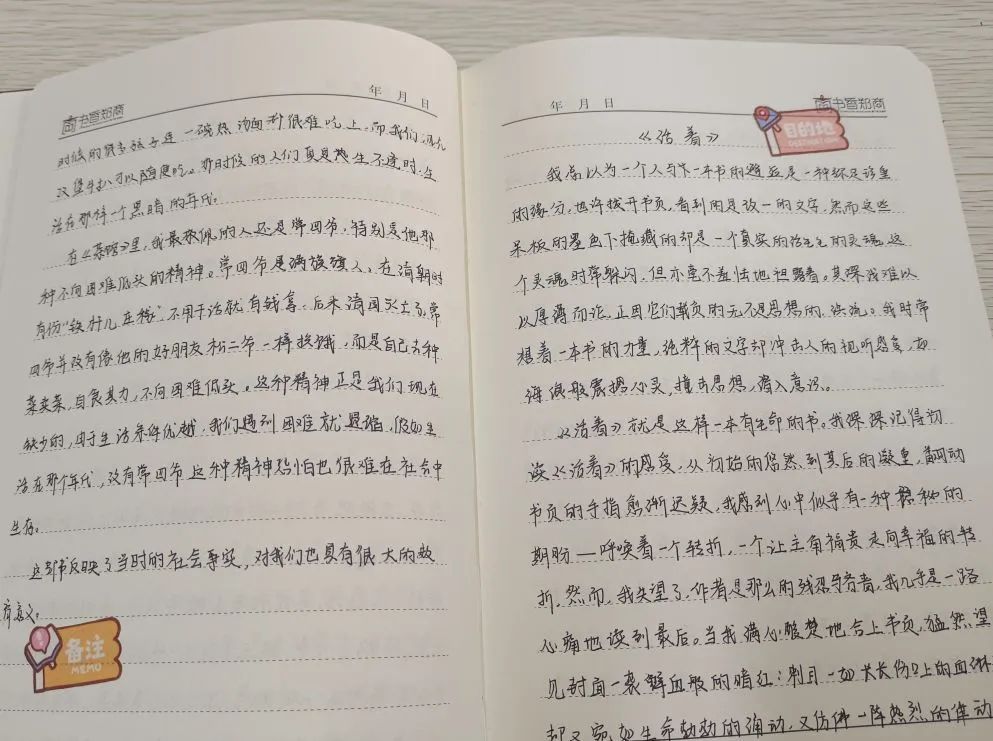 尚书宣知商
年 月 日
时候的很多孩子连一碗热汤面都很难吃上，而我们
汉堡牛扒可以随便吃。那时候的人们真是生不逢时，生
活在那样一个黑暗的年代。
在《茶馆》里，我最敬佩的人还是常四爷，特别是他那
种不向困难低头的精神。常四爷是满族旗人，在清朝时
有份“铁杆儿庄稼”，不用干活就有钱拿，后来清国灭亡了，常
四爷并没有像他的好朋友松二爷一样挨饿，而是自己去种
菜卖菜，自食其力，不向困难低头。这种精神正是我们现在
缺少的，由于生活条件优越，我们遇到困难就退缩，假如生
活在那个年代，没有常四爷这种精神恐怕也很难在社会中
生存。
这部书反映了当时的社会事实，对我们也具有很大的教
育意义。
备注
MEMO
年 月 日
尚书宣知商
目的地
DESTINATION
《活着》
我总以为一个人与一本书的邂逅是一种弥足珍重
的缘分，也许拨开书页，看到的是统一的文字，然而这些
呆板的墨色下掩藏的却是一个真实的活生生的灵魂，这
个灵魂时常躲闪，但亦毫不羞怯地袒露着。其深浅难以
以厚薄而论，正因它们载负的无不是思想的流。我时常
想着一本书的力量，纯粹的文字却冲击人的视听感官，如
海浪般震撼心灵，撞击思想，潜入意识。
《活着》就是这样一本有生命的书。我深深记得初
读《活着》的感受，从初始的悠然到其后的凝重，翻动
书页的手指愈渐迟疑，我感到心中似乎有一种秘的
期盼——呼唤着一个转折，一个让主角福贵走向幸福的转
折，然而，我失望了，作者是那么的残忍与吝啬，我几乎是一路
心痛地读到最后。当我满心酸楚地合上书页，猛然望
见封面一袭鲜血般的暗红：刺目一如长长伤口上的血淋
却又宛如生命勃勃的涌动，又仿佛一阵热烈的律动